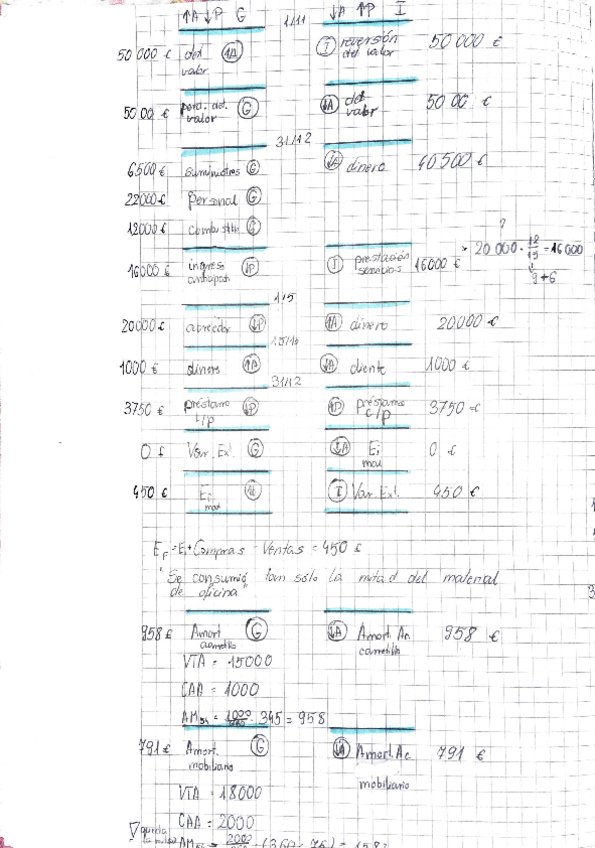 ↑A ↓P G 1/11 ↓A ↑P I
50 000 € det valor ↑A I reversión del valor 50 000 €
50 00 € det. valor G ↓A det valor 50 00 €
31/12
6500 € suministros G ↓A dinero 40 500 €
22000 € Personal G
12000 € G
?
16000 € ingreso ↓P I prestación servicios 16000 € 20 000 · 12/15 = 16 000
9+6
1/5
20000 € acreedor ↓P dinero 20000 €
15/10
1000 € dinero ↑A ↓A cliente 1000 €
31/12
3750 € préstamo l/p ↓P ↑P préstamo c/p 3750 €
0 € Var. Ex! G ↓A Ei mat 0 €
450 € mat I Var. Ex!. 450 €
EF = Ei + Compras - Ventas = 450 €
"Se consumió tan sólo la mitad del material
de oficina"
958 € Amort carretilla G ↓A Amort. Ac carretilla 958 €
VTA = 15000
CAA = 1000
= 1000 · 345 = 958
791 € Amort. mobiliario G ↓A Amort. Ac mobiliario 791 €
VTA = 18000
CAA = 2000